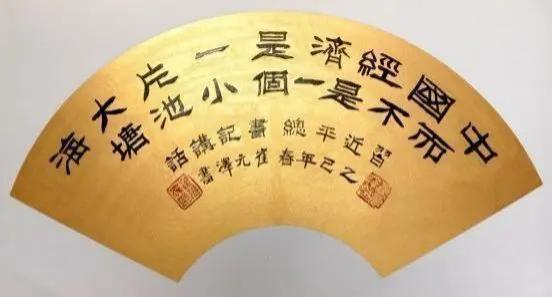 中國經濟是一片大海
而不是一個小池塘
習近平總書記講話
乙巳年春崔元澤書